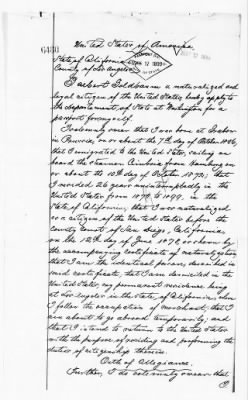 United States of America
State of California
County of Los Angeles
I Gilbert Goldbaum a naturalized and
legal citizen of the United States, hereby apply to
the Department of State at Washington for a
passport for myself.
I solemnly swear that I was born at
in Prussia, on or about the 7th day of October 1856,
that I emigrated to the United States, sailing on
board the steamer Cimbria from Hamburg on
or about the 10th day of October 1872; that
I resided 26 years uninterruptedly in the
United States from 1872 to 1899, in the
State of California; that I was naturalized
as a citizen of the United States before the
County Court of San Diego, California
on the 12th day of June 1878, as shown by
the accompanying certificate of naturalization
that I am the identical person described in
said certificate, that I am domiciled in the
United States, my permanent residence being
at Los Angeles in the State of California, where
I follow the occupation of merchant; that I
am about to go abroad temporarily; and
that I intend to return to the United States
with the purpose of residing and performing the
duties of citizenship therein.
Oath of Allegiance.
Further, I do solemnly swear that
I